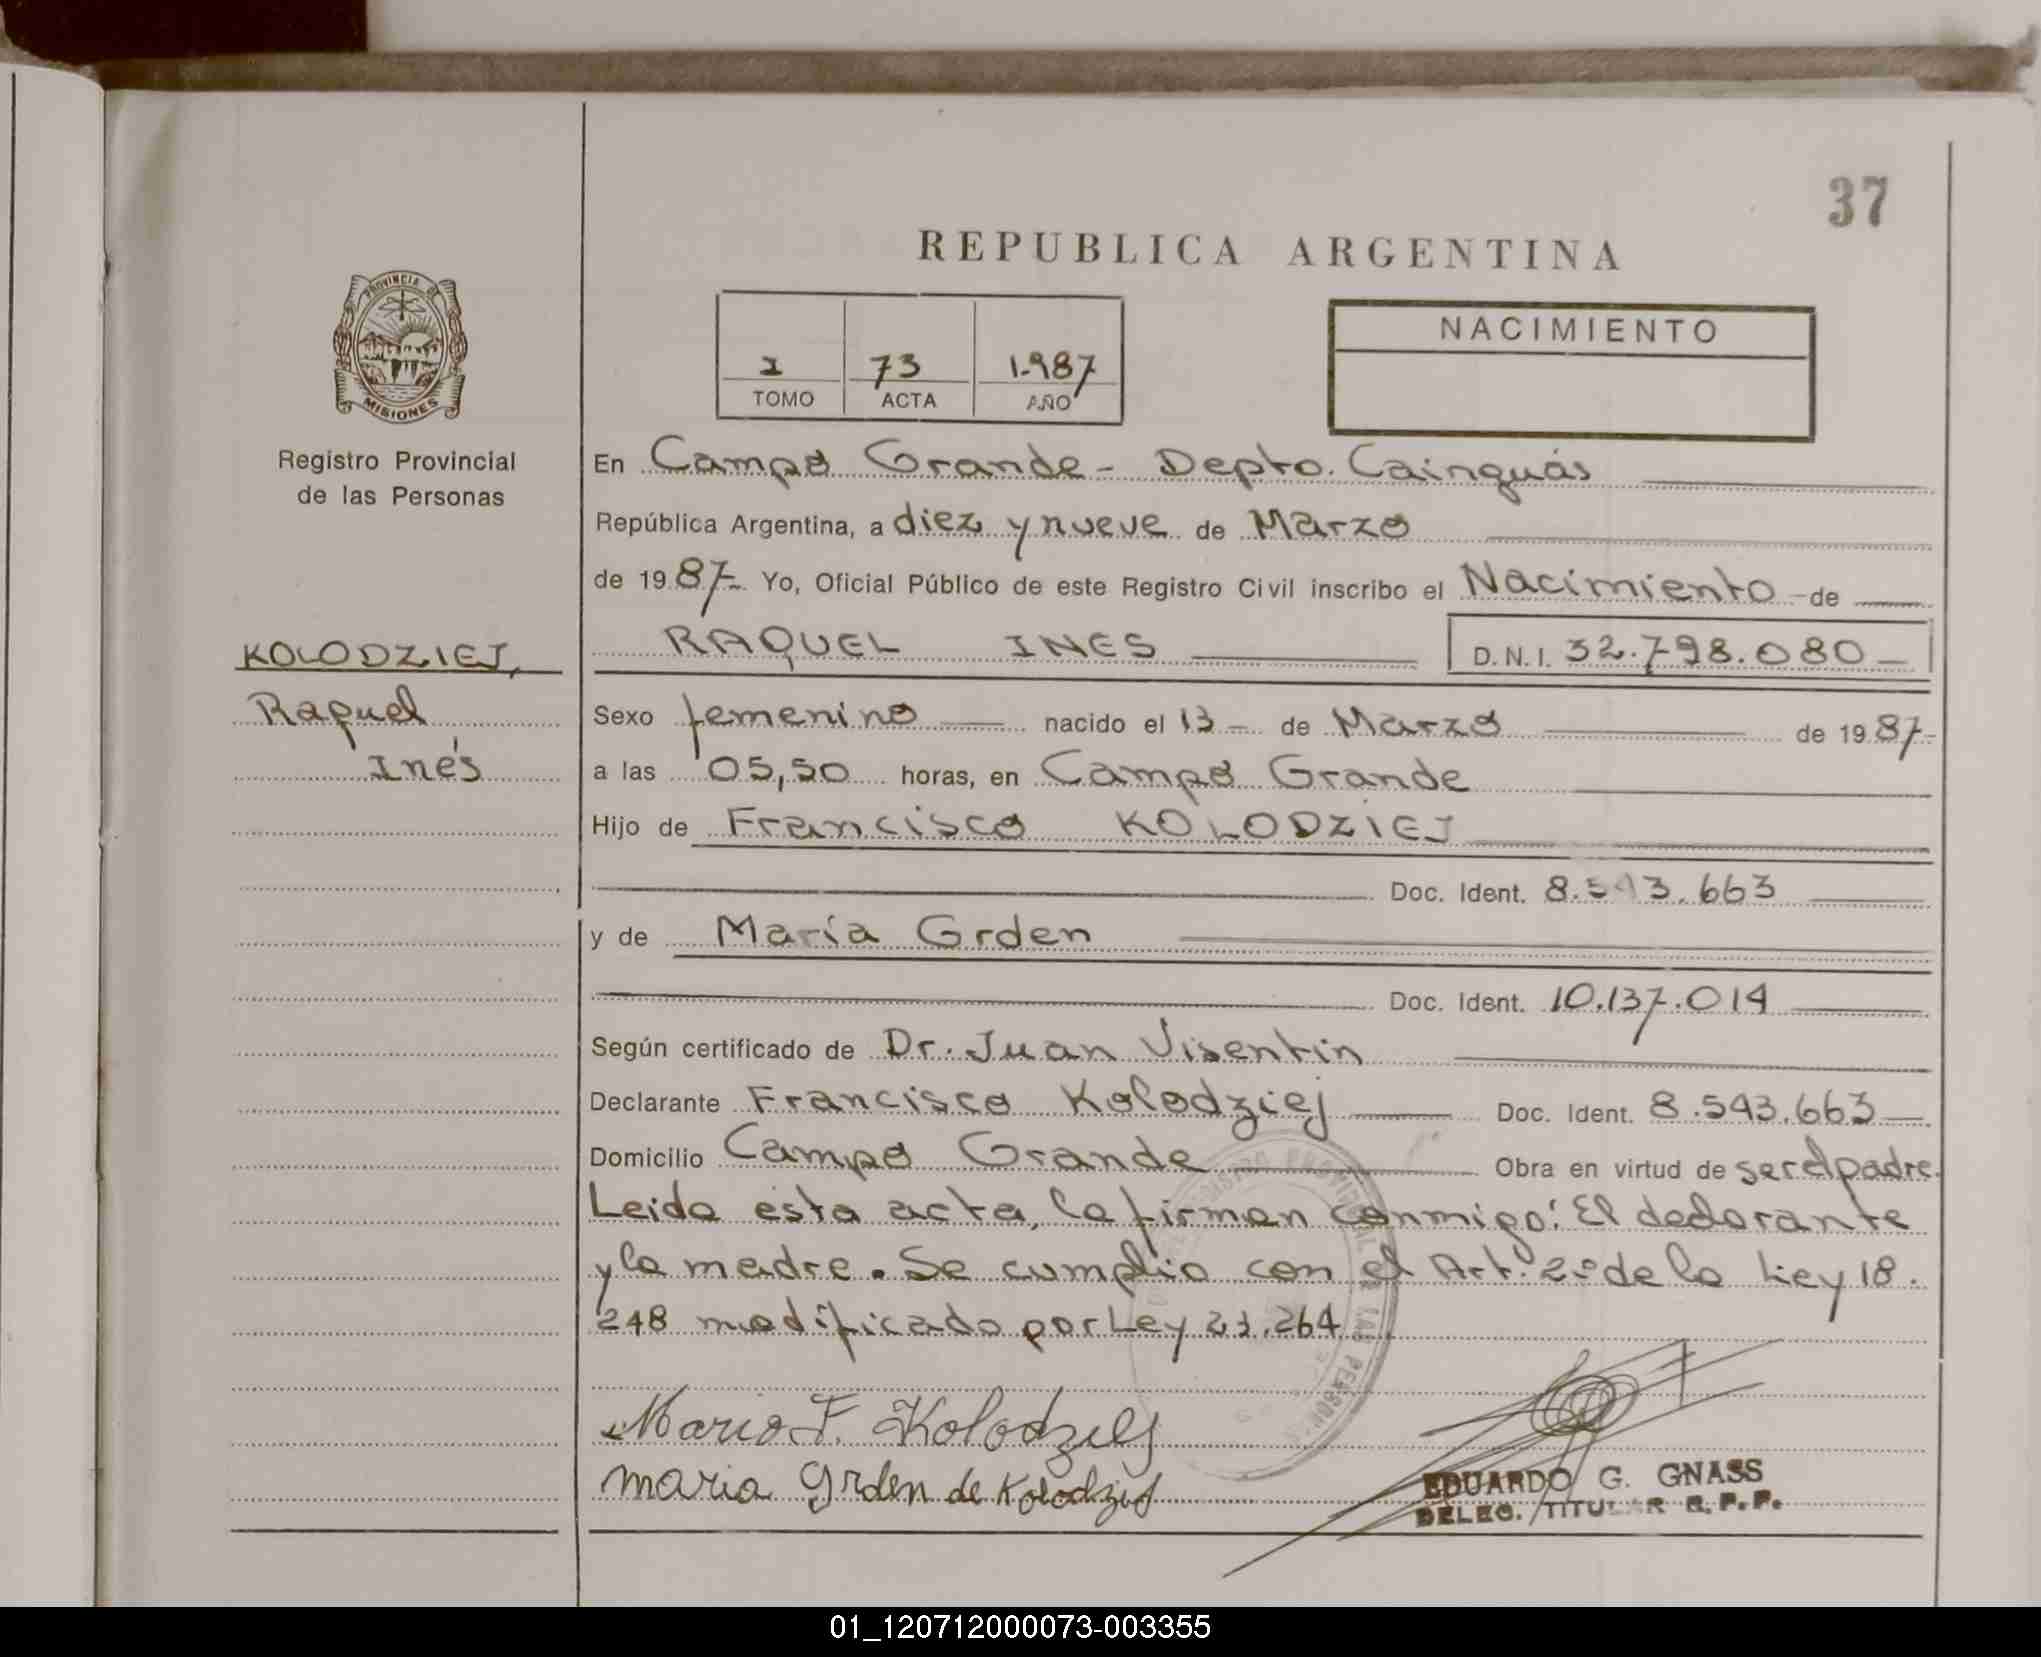 37
REPUBLICA ARGENTINA
PROVINCIA DE
MISIONES
Registro Provincial
de las Personas
KOLODZIEJ,
Raquel
Inés
I 73 1.987
TOMO ACTA AÑO
NACIMIENTO
En Campo Grande - Depto. Cainguás
República Argentina, a diez y nueve de Marzo
de 1987- Yo, Oficial Público de este Registro Civil inscribo el Nacimiento - de
RAQUEL INES D.N.I. 32.798.080 -
Sexo femenino nacido el 13 - de Marzo de 1987-
a las 05,50 horas, en Campo Grande
Hijo de Francisco KOLODZIEJ
Doc. Ident. 8.543.663
y de María Grden
Doc. Ident. 10.137.014
Según certificado de Dr. Juan Visentin
Declarante Francisco Kolodziej Doc. Ident. 8.543.663
Domicilio Campo Grande Obra en virtud de ser el padre.
Leida esta acta, la firman conmigo: El declarante
y la madre. Se cumplio con el Art. 2º de la Ley 18.
248 modificado por Ley 23.264
Mario F. Kolodziej
maria Grden de Kolodziej
EDUARDO G. GNASS
DELEG. TITULAR R.P.P.
01_120712000073-003355